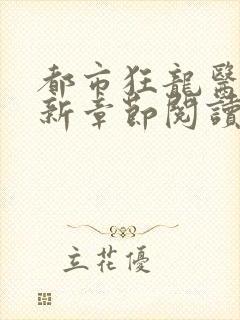 都市狂龍醫
新章節閱讀
立花優